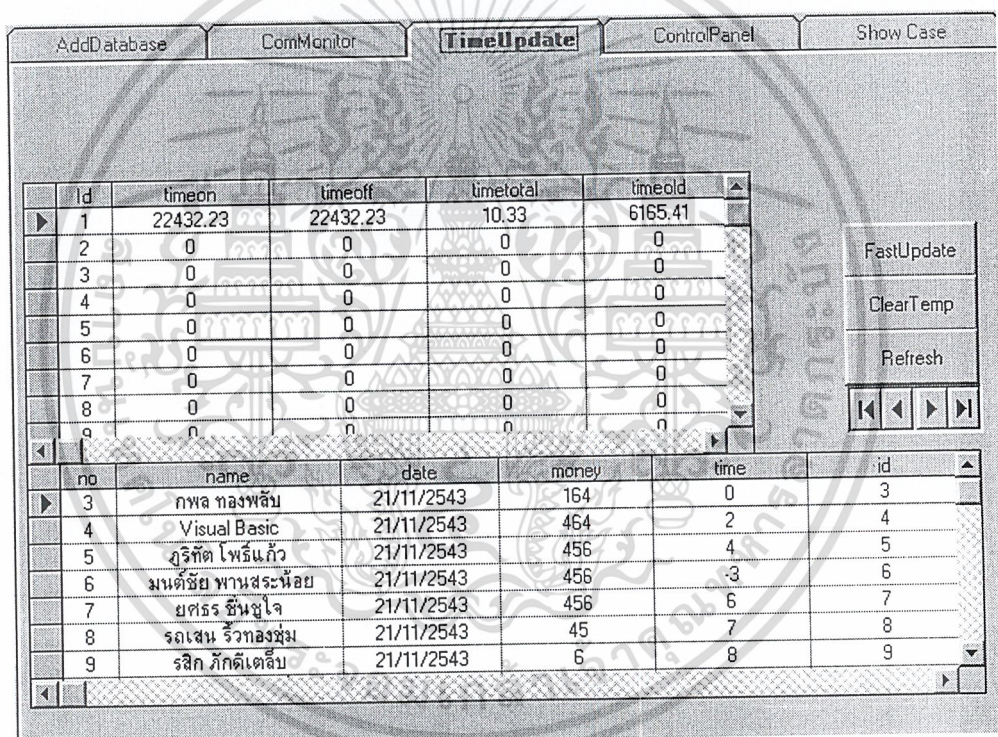 AddDatabase ComMonitor TimeUpdate ControlPanel Show Case
Id timeon timeoff timetotal timeold
1 22432.23 22432.23 10.33 6165.41
2 0 0 0 0
3 0 0 0 0
4 0 0 0 0
5 0 0 0 0
6 0 0 0 0
7 0 0 0 0
8 0 0 0 0
9 0 0 0 0
FastUpdate
ClearTemp
Refresh
no name date money time id
3 กพล ทองพลับ 21/11/2543 164 0 3
4 Visual Basic 21/11/2543 464 2 4
5 ภูริทัต โพธิ์แก้ว 21/11/2543 456 4 5
6 มนต์ชัย พานสระน้อย 21/11/2543 456 -3 6
7 ยศธร ชื่นชูใจ 21/11/2543 456 6 7
8 รถเสน ริ้วทองชุ่ม 21/11/2543 45 7 8
9 รสิก ภักดีเตล็บ 21/11/2543 6 8 9